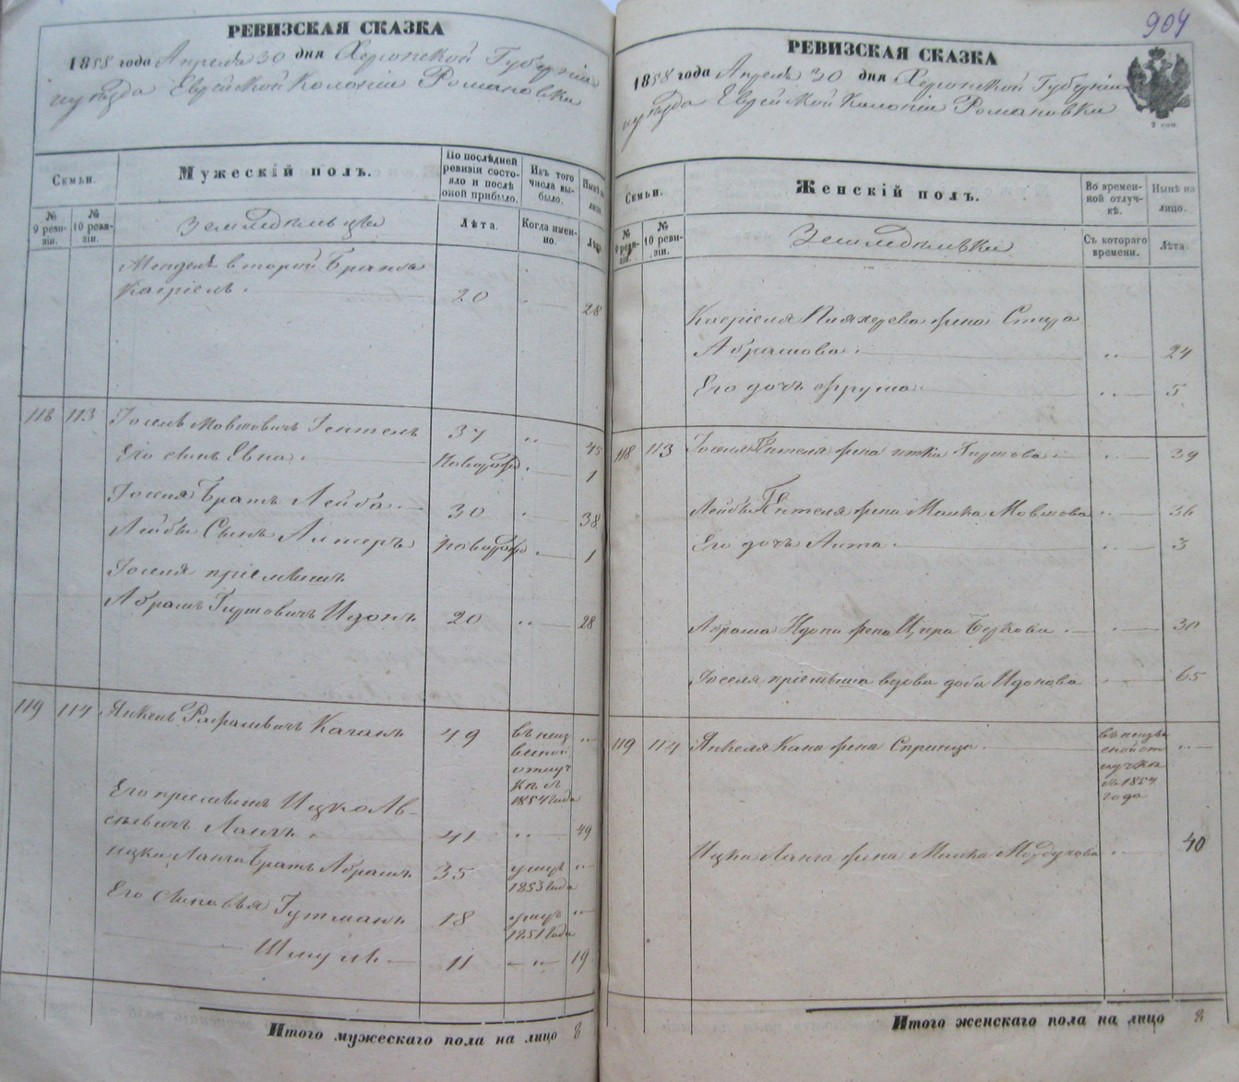 РЕВИЗСКАЯ СКАЗКА
1858 года Апреля 30 дня Херсонской Губерніи
и уѣзда Еврейской Колоніи Романовки
Семьи.
Мужескій полъ.
По послѣдней ревизіи состояло и послѣ оной прибыло.
Изъ того числа выбыло.
Нынѣ на лицо.
№ 9 ревизіи.
№ 10 ревизіи.
Земледѣльцы
Лѣта.
Когда именно.
Лѣта
Менделя второй Братъ
Касріель 20 28
118 113 Іосель Мовшовичъ 37 45
Его сынъ Евна новорож 1
Іоселя Братъ Лейба 30 38
Лейбы Сынъ Липеръ новорож 1
Іоселя пріемышъ
Абрамъ 20 28
119 114 Янкель Рафаиловичъ Каганъ 49 въ неиз
вѣстной
отлуч
кѣ съ
1854 года
Его племянникъ Ицко Ав-
41 49
Ицки Ланга Братъ Абрамъ 35 умеръ
1853 года
Его Сыновья Гутманъ 18 умеръ
1851 года
Шмуль 11 19
Итого мужескаго пола на лицо 8
904
РЕВИЗСКАЯ СКАЗКА
1858 года Апреля 30 дня Херсонской Губерніи
и уѣзда Еврейской Колоніи Романовки
Семьи.
Женскій полъ.
Во временной отлучкѣ.
Нынѣ на лицо.
№ 9 ревизіи.
№ 10 ревизіи.
Земледѣлки
Съ котораго времени.
Лѣта.
Касріеля жена
Абрамова 24
Его дочь Фрума 5
118 113 Іоселя жена Итка 39
Лейбы жена Малка Мовшова 36
Его дочь 3
Абрама жена Ципа Беркова 30
Іоселя вдова Доба 65
119 114 Янкеля Кагана жена Сприца въ неизвѣ
стной от
лучкѣ
съ 1854
года
Ицки Ланга жена Малка Мордухова 40
Итого женскаго пола на лицо 8